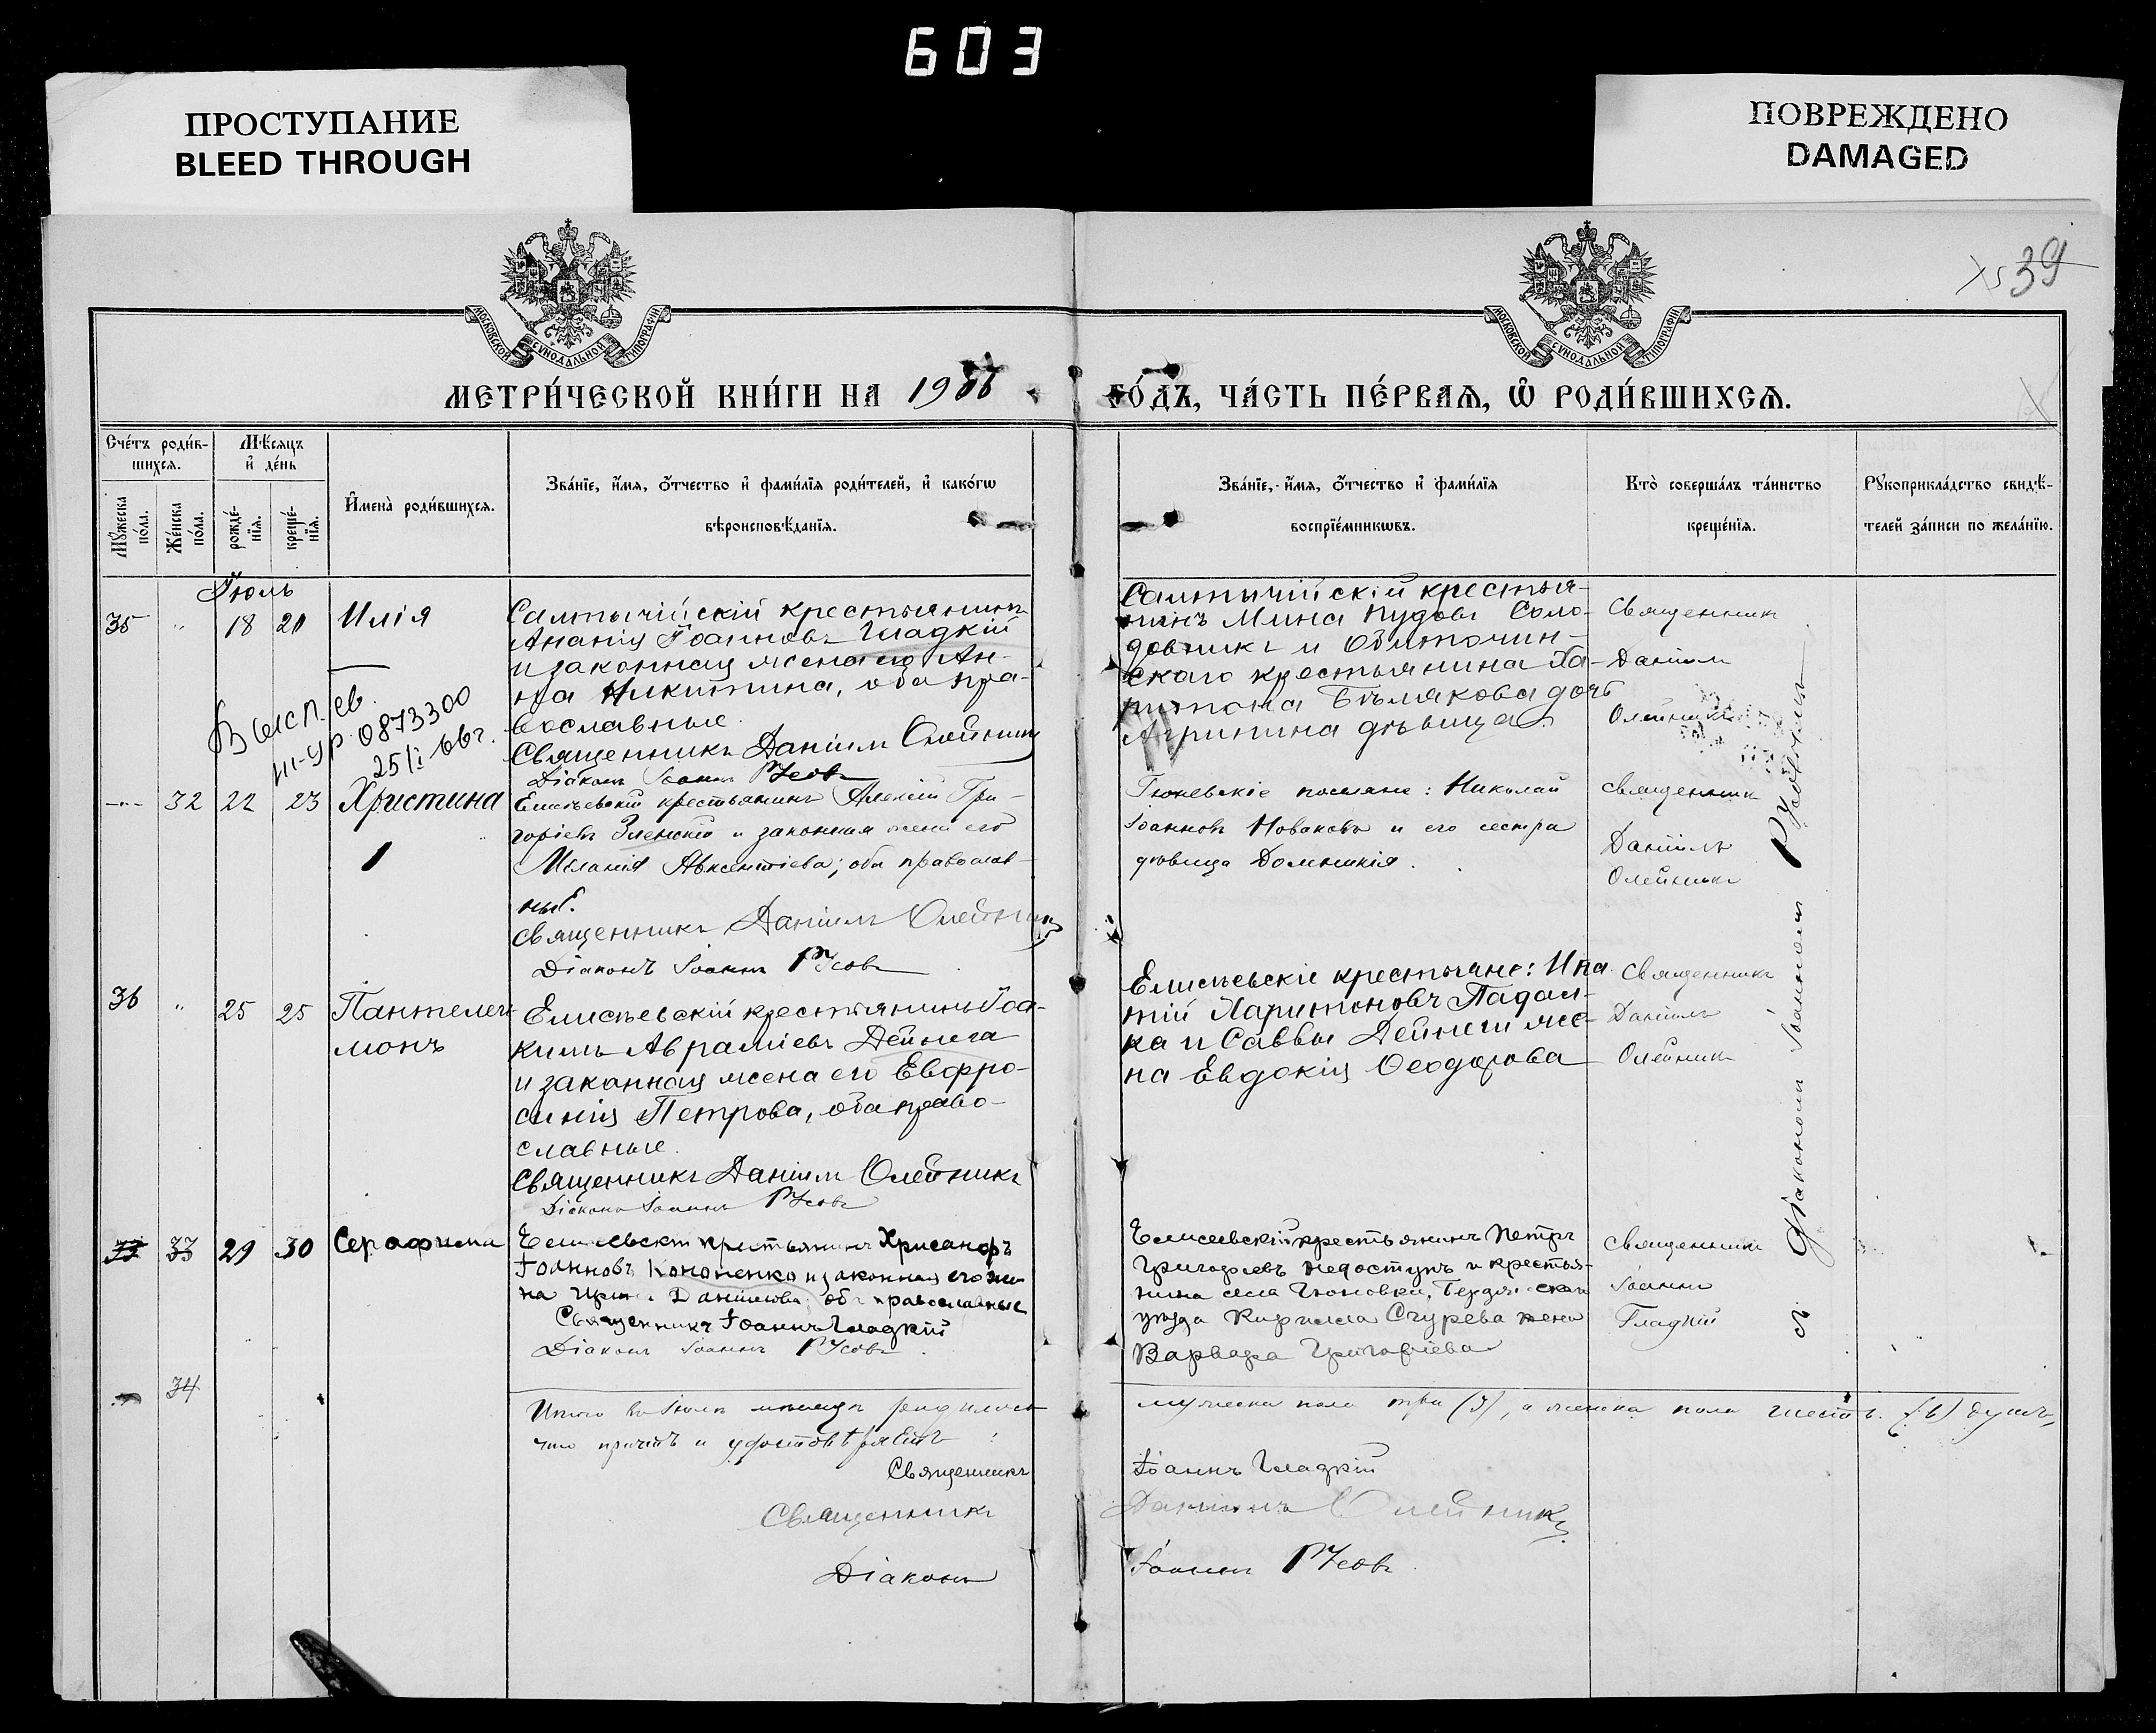 603
ПРОСТУПАНИЕ
BLEED THROUGH
ПОВРЕЖДЕНО
DAMAGED
39
МОСКОВСКОЙ СѴНОДАЛЬНОЙ ТИПОГРАФІИ
МОСКОВСКОЙ СѴНОДАЛЬНОЙ ТИПОГРАФІИ
МЕТРИ́ЧЕСКОЙ КНИ́ГИ НА 1906 ГО́ДЪ, ЧА́СТЬ ПЕ́РВАѦ, Ѽ РОДИ́ВШИХСѦ.
Сче́тъ роди́в-
шихся.
Мѣ́сяцъ
и҆ де́нь
Мꙋ́жеска по́ла.
Же́нска по́ла.
рожде́-нїя.
креще́-нїя.
И҆мена̀ роди́вшихся.
Зва́нїе, и҆́мя, ѻ҆́тчество и҆ фами́лїя роди́телей, и҆ како́гѡ
вѣроисповѣ́данїя.
Зва́нїе, и҆́мя, ѻ҆́тчество и҆ фами́лїя
воспрїе́мникѡвъ.
Кто̀ соверша́лъ та́инство
креще́нїя.
Рꙋкоприкла́дство свидѣ́-
телей за́писи по жела́нїю.
Іюль
35 " 18 20 Илія
Салтычійскій крестьянинъ
Ананія Іоанновъ Гладкій
и законная жена его Ан-
на Никитина, оба пра-
вославные.
Священникъ Даніилъ Олейникъ
Діаконъ Іоаннъ Русовъ
Салтычійскій крестья-
нинъ Мина Пудовъ Соло-
довникъ и Обиточин-
скаго крестьянина Ха-
ритона Бѣлякова дочь
Агрипина дѣвица.
Священникъ
Даніилъ
Олейникъ
0873300
25/I 66г.
32 22 23 Христина
Елисѣевскій крестьянинъ Алексій Гри-
горіевъ Зленскій и законная жена его
Меланія Авксентіева; оба православ-
ные.
Священникъ Даніилъ Олейникъ
Діаконъ Іоаннъ Русовъ
Гюневскіе поселяне: Николай
Іоанновъ Новаковъ и его сестра
дѣвица Домникія.
Священникъ
Даніилъ
Олейникъ
36 " 25 25 Пантелеи-
монъ
Елисѣевскій крестьянинъ Іоа-
кимъ Авраміевъ Дейнега
и законная жена его Евфро-
синія Петрова, оба право-
славные.
Священникъ Даніилъ Олейникъ
Діаконъ Іоаннъ Русовъ
Елисѣевскіе крестьяне: Ипа-
тій Харитоновъ Падал-
ка и Саввы Дейнеги же-
на Евдокія Ѳеодорова
Священникъ
Даніилъ
Олейникъ
33 29 30 Серафима
Елисѣевскій крестьянинъ Хрисанфъ
Іоанновъ Кононенко и законная его же-
на Ирина Даніилова оба православные
Священникъ Іоаннъ Гладкій
Діаконъ Іоаннъ Русовъ
Елисеевскій крестьянинъ Петръ
Григорьевъ Недоступъ и крестья-
нина села Гюновки, Бердянскаго
уѣзда Кирилла Сгурева жена
Варвара Григоріева
Священникъ
Іоаннъ
Гладкій
съ Діакономъ Іоанномъ Русовымъ
34
Итого въ Іюлѣ мѣсяцѣ родилось мужеска пола три (3), а женска пола шесть (6) душъ,
что причтъ и удостовѣряетъ:
Священникъ Іоаннъ Гладкій
Священникъ Даніилъ Олейникъ
Діаконъ Іоаннъ Русовъ